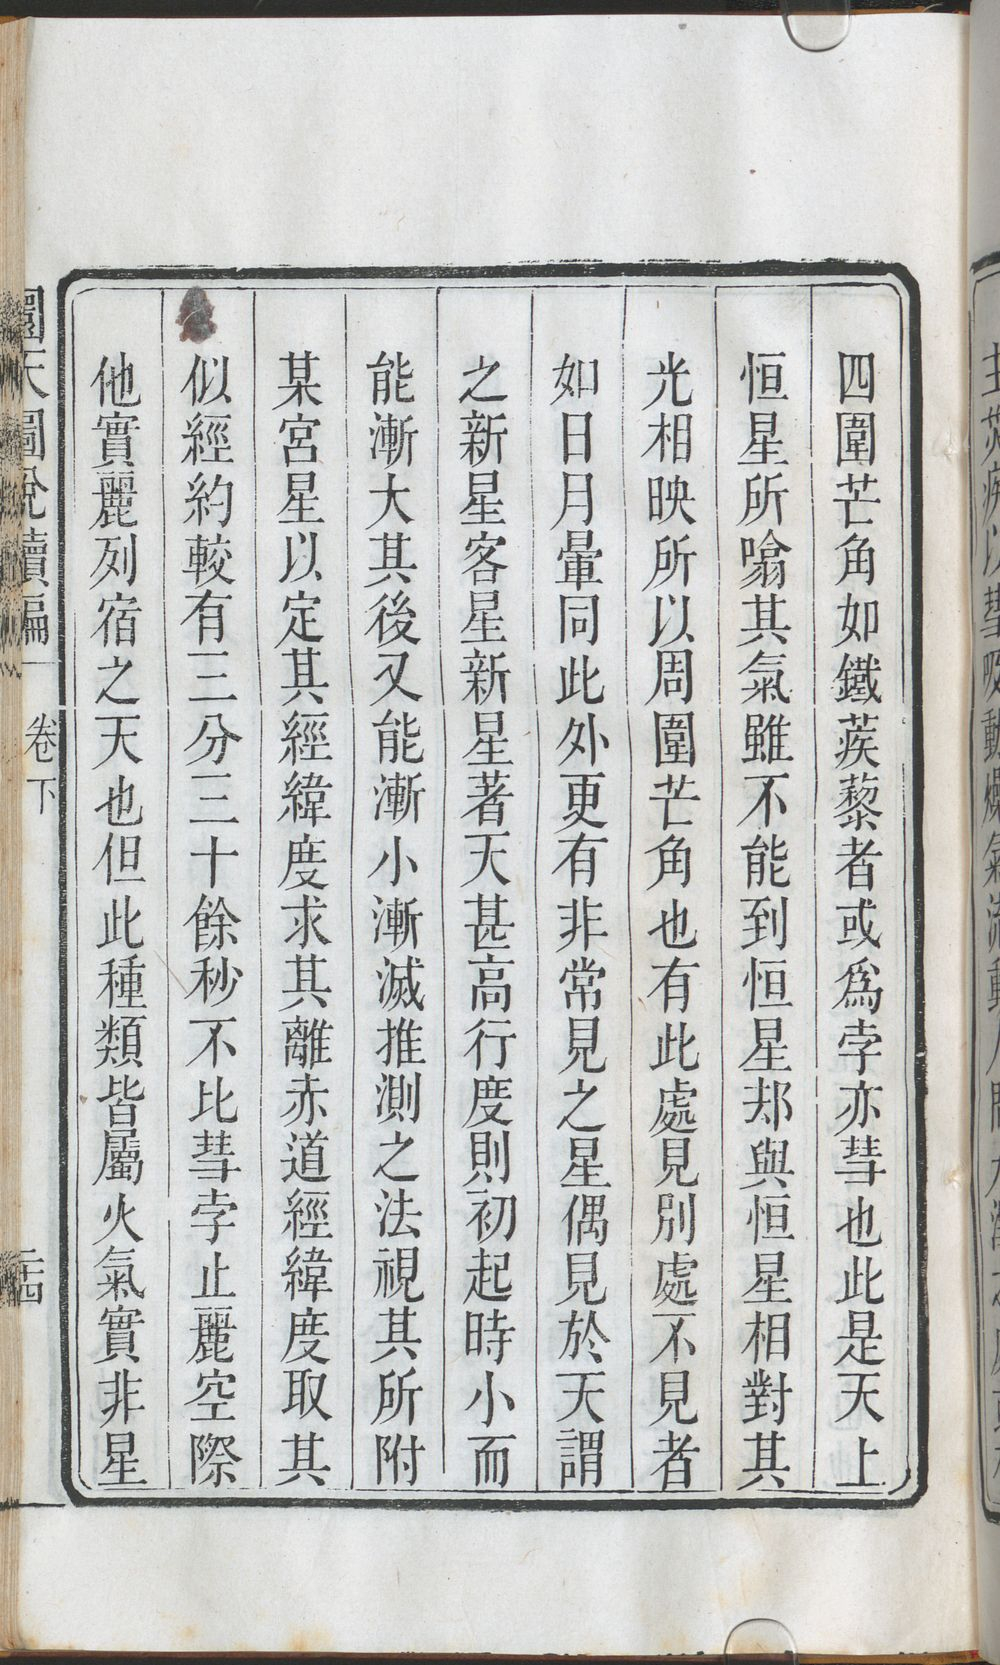 四圍芒角如鐵蒺藜者或爲孛亦彗也此是天上
恒星所噏其氣雖不能到恒星却與恒星相對其
光相映所以周圍芒角也有此處見別處不見者
如日月暈同此外更有非常見之星偶見於天謂
之新星客星新星著天甚高行度則初起時小而
能漸大其後又能漸小漸滅推測之法視其所附
某宮星以定其經緯度求其離赤道經緯度取其
似經約較有三分三十餘秒不比彗孛止麗空際
他實麗列宿之天也但此種類皆屬火氣實非星
圜天圖說續編
卷下